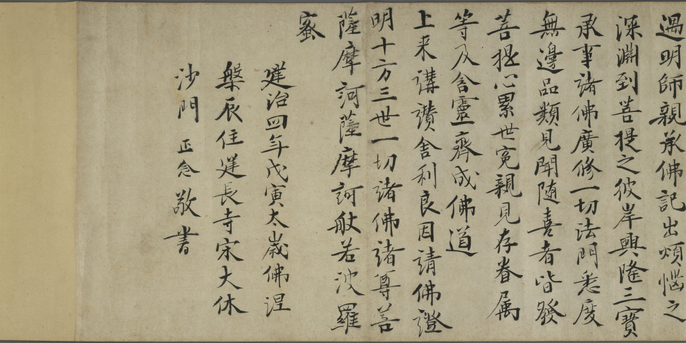 遇明師親承佛記出煩惱之
深淵到菩提之彼岸興隆三寳
承事諸佛廣修一切法門悉度
無邊品類見聞随喜者皆發
菩提心累世寃親見存眷属
等及含靈齊成佛道
上来講讃舎利良因請佛證
明十方三世一切諸佛諸尊菩
薩摩訶薩摩訶般若波羅
蜜
建治四年戊寅太歳佛涅
槃辰住建長寺宋大休
沙門 正念 敬書